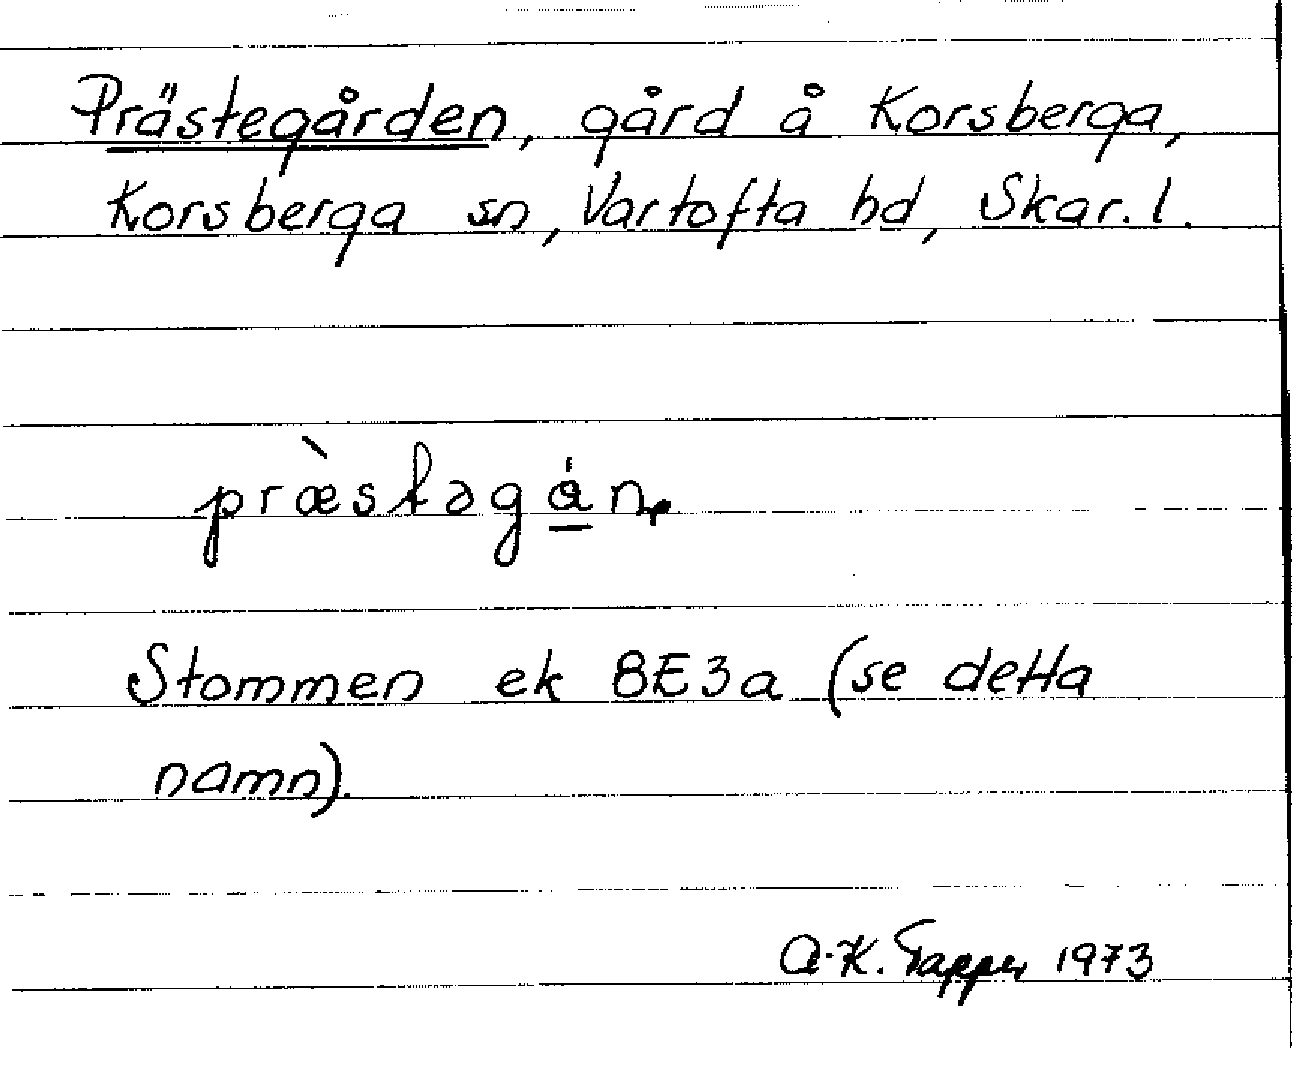 Prästegården, gård å Korsberga,
Korsberga sn, Vartofta hd, Skar. l.
præ̀stəgán
Stommen ek 8E3a (se detta
namn).
A-K. Tapper 1973